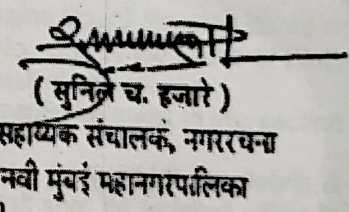 ( सुनिल च. हजारे )
सहाय्यक संचालक, नगररचना
नवी मुंबई महानगरपालिका